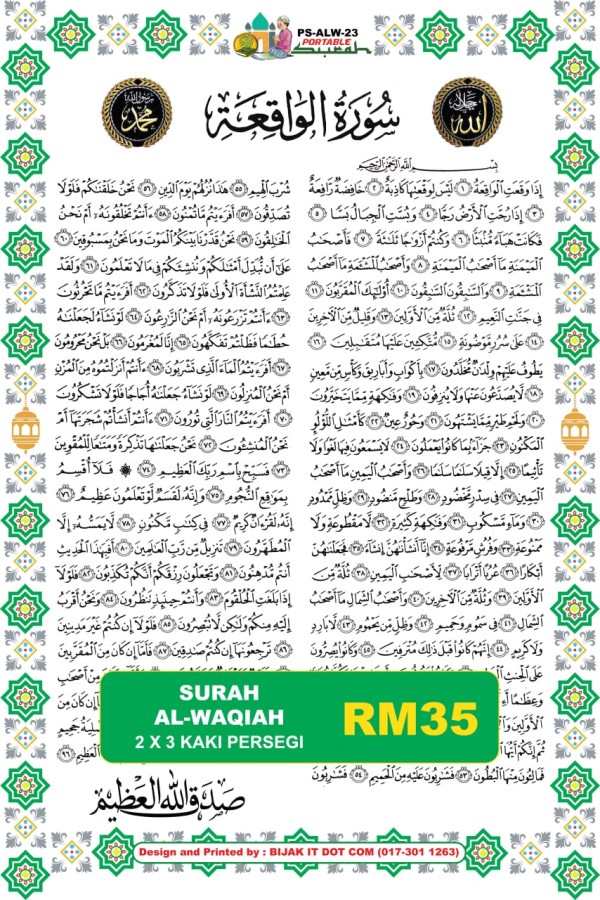 PS-ALW-23
PORTABLE
Surah
سُورَةُ الوَاقِعَة
الله جل جلاله
محمد رسول الله
بِسْمِ اللهِ الرَّحْمٰنِ الرَّحِيْمِ
إِذَا وَقَعَتِ الْوَاقِعَةُ ﴿١﴾ لَيْسَ لِوَقْعَتِهَا كَاذِبَةٌ ﴿٢﴾ خَافِضَةٌ رَّافِعَةٌ
﴿٣﴾ إِذَا رُجَّتِ الْأَرْضُ رَجًّا ﴿٤﴾ وَبُسَّتِ الْجِبَالُ بَسًّا ﴿٥﴾
فَكَانَتْ هَبَاءً مُّنْبَثًّا ﴿٦﴾ وَكُنْتُمْ أَزْوَاجًا ثَلَاثَةً ﴿٧﴾ فَأَصْحَابُ
الْمَيْمَنَةِ مَا أَصْحَابُ الْمَيْمَنَةِ ﴿٨﴾ وَأَصْحَابُ الْمَشْأَمَةِ مَا أَصْحَابُ
الْمَشْأَمَةِ ﴿٩﴾ وَالسَّابِقُونَ السَّابِقُونَ ﴿١٠﴾ أُولَٰئِكَ الْمُقَرَّبُونَ ﴿١١﴾
فِي جَنَّاتِ النَّعِيمِ ﴿١٢﴾ ثُلَّةٌ مِّنَ الْأَوَّلِينَ ﴿١٣﴾ وَقَلِيلٌ مِّنَ الْآخِرِينَ
﴿١٤﴾ عَلَىٰ سُرُرٍ مَّوْضُونَةٍ ﴿١٥﴾ مُّتَّكِئِينَ عَلَيْهَا مُتَقَابِلِينَ ﴿١٦﴾
يَطُوفُ عَلَيْهِمْ وِلْدَانٌ مُّخَلَّدُونَ ﴿١٧﴾ بِأَكْوَابٍ وَأَبَارِيقَ وَكَأْسٍ مِّن مَّعِينٍ
﴿١٨﴾ لَّا يُصَدَّعُونَ عَنْهَا وَلَا يُنزِفُونَ ﴿١٩﴾ وَفَاكِهَةٍ مِّمَّا يَتَخَيَّرُونَ
﴿٢٠﴾ وَلَحْمِ طَيْرٍ مِّمَّا يَشْتَهُونَ ﴿٢١﴾ وَحُورٌ عِينٌ ﴿٢٢﴾ كَأَمْثَالِ اللُّؤْلُؤِ
الْمَكْنُونِ ﴿٢٣﴾ جَزَاءً بِمَا كَانُوا يَعْمَلُونَ ﴿٢٤﴾ لَا يَسْمَعُونَ فِيهَا لَغْوًا وَلَا
تَأْثِيمًا ﴿٢٥﴾ إِلَّا قِيلًا سَلَامًا سَلَامًا ﴿٢٦﴾ وَأَصْحَابُ الْيَمِينِ مَا أَصْحَابُ
الْيَمِينِ ﴿٢٧﴾ فِي سِدْرٍ مَّخْضُودٍ ﴿٢٨﴾ وَطَلْحٍ مَّنضُودٍ ﴿٢٩﴾ وَظِلٍّ مَّمْدُودٍ
﴿٣٠﴾ وَمَاءٍ مَّسْكُوبٍ ﴿٣١﴾ وَفَاكِهَةٍ كَثِيرَةٍ ﴿٣٢﴾ لَّا مَقْطُوعَةٍ وَلَا
مَمْنُوعَةٍ ﴿٣٣﴾ وَفُرُشٍ مَّرْفُوعَةٍ ﴿٣٤﴾ إِنَّا أَنشَأْنَاهُنَّ إِنشَاءً ﴿٣٥﴾ فَجَعَلْنَاهُنَّ
أَبْكَارًا ﴿٣٦﴾ عُرُبًا أَتْرَابًا ﴿٣٧﴾ لِّأَصْحَابِ الْيَمِينِ ﴿٣٨﴾ ثُلَّةٌ مِّنَ
الْأَوَّلِينَ ﴿٣٩﴾ وَثُلَّةٌ مِّنَ الْآخِرِينَ ﴿٤٠﴾ وَأَصْحَابُ الشِّمَالِ مَا أَصْحَابُ
الشِّمَالِ ﴿٤١﴾ فِي سَمُومٍ وَحَمِيمٍ ﴿٤٢﴾ وَظِلٍّ مِّن يَحْمُومٍ ﴿٤٣﴾ لَّا بَارِدٍ
وَلَا كَرِيمٍ ﴿٤٤﴾ إِنَّهُمْ كَانُوا قَبْلَ ذَٰلِكَ مُتْرَفِينَ ﴿٤٥﴾ وَكَانُوا يُصِرُّونَ
عَلَى الْحِنثِ
وَعِظَامًا
الْأَوَّلِينَ
ثُمَّ إِنَّكُمْ أَيُّهَا
فَمَالِئُونَ مِنْهَا الْبُطُونَ ﴿٥٣﴾ فَشَارِبُونَ عَلَيْهِ مِنَ الْحَمِيمِ ﴿٥٤﴾ فَشَارِبُونَ
شُرْبَ الْهِيمِ ﴿٥٥﴾ هَٰذَا نُزُلُهُمْ يَوْمَ الدِّينِ ﴿٥٦﴾ نَحْنُ خَلَقْنَاكُمْ فَلَوْلَا
تُصَدِّقُونَ ﴿٥٧﴾ أَفَرَأَيْتُم مَّا تُمْنُونَ ﴿٥٨﴾ أَأَنتُمْ تَخْلُقُونَهُ أَمْ نَحْنُ
الْخَالِقُونَ ﴿٥٩﴾ نَحْنُ قَدَّرْنَا بَيْنَكُمُ الْمَوْتَ وَمَا نَحْنُ بِمَسْبُوقِينَ ﴿٦٠﴾
عَلَىٰ أَن نُّبَدِّلَ أَمْثَالَكُمْ وَنُنشِئَكُمْ فِي مَا لَا تَعْلَمُونَ ﴿٦١﴾ وَلَقَدْ
عَلِمْتُمُ النَّشْأَةَ الْأُولَىٰ فَلَوْلَا تَذَكَّرُونَ ﴿٦٢﴾ أَفَرَأَيْتُم مَّا تَحْرُثُونَ
﴿٦٣﴾ أَأَنتُمْ تَزْرَعُونَهُ أَمْ نَحْنُ الزَّارِعُونَ ﴿٦٤﴾ لَوْ نَشَاءُ لَجَعَلْنَاهُ
حُطَامًا فَظَلْتُمْ تَفَكَّهُونَ ﴿٦٥﴾ إِنَّا لَمُغْرَمُونَ ﴿٦٦﴾ بَلْ نَحْنُ مَحْرُومُونَ
﴿٦٧﴾ أَفَرَأَيْتُمُ الْمَاءَ الَّذِي تَشْرَبُونَ ﴿٦٨﴾ أَأَنتُمْ أَنزَلْتُمُوهُ مِنَ الْمُزْنِ
أَمْ نَحْنُ الْمُنزِلُونَ ﴿٦٩﴾ لَوْ نَشَاءُ جَعَلْنَاهُ أُجَاجًا فَلَوْلَا تَشْكُرُونَ
﴿٧٠﴾ أَفَرَأَيْتُمُ النَّارَ الَّتِي تُورُونَ ﴿٧١﴾ أَأَنتُمْ أَنشَأْتُمْ شَجَرَتَهَا أَمْ
نَحْنُ الْمُنشِئُونَ ﴿٧٢﴾ نَحْنُ جَعَلْنَاهَا تَذْكِرَةً وَمَتَاعًا لِّلْمُقْوِينَ
﴿٧٣﴾ فَسَبِّحْ بِاسْمِ رَبِّكَ الْعَظِيمِ ﴿٧٤﴾ ۞ فَلَا أُقْسِمُ
بِمَوَاقِعِ النُّجُومِ ﴿٧٥﴾ وَإِنَّهُ لَقَسَمٌ لَّوْ تَعْلَمُونَ عَظِيمٌ ﴿٧٦﴾
إِنَّهُ لَقُرْآنٌ كَرِيمٌ ﴿٧٧﴾ فِي كِتَابٍ مَّكْنُونٍ ﴿٧٨﴾ لَّا يَمَسُّهُ إِلَّا
الْمُطَهَّرُونَ ﴿٧٩﴾ تَنزِيلٌ مِّن رَّبِّ الْعَالَمِينَ ﴿٨٠﴾ أَفَبِهَٰذَا الْحَدِيثِ
أَنتُم مُّدْهِنُونَ ﴿٨١﴾ وَتَجْعَلُونَ رِزْقَكُمْ أَنَّكُمْ تُكَذِّبُونَ ﴿٨٢﴾ فَلَوْلَا
إِذَا بَلَغَتِ الْحُلْقُومَ ﴿٨٣﴾ وَأَنتُمْ حِينَئِذٍ تَنظُرُونَ ﴿٨٤﴾ وَنَحْنُ أَقْرَبُ
إِلَيْهِ مِنكُمْ وَلَٰكِن لَّا تُبْصِرُونَ ﴿٨٥﴾ فَلَوْلَا إِن كُنتُمْ غَيْرَ مَدِينِينَ
﴿٨٦﴾ تَرْجِعُونَهَا إِن كُنتُمْ صَادِقِينَ ﴿٨٧﴾ فَأَمَّا إِن كَانَ مِنَ الْمُقَرَّبِينَ
مِنْ أَصْحَابِ
إِن كَانَ مِنَ
جَحِيمٍ
الْعَظِيمِ ﴿٩٦﴾
صدق الله العظيم
SURAH
AL-WAQIAH
2 X 3 KAKI PERSEGI
RM35
Design and Printed by : BIJAK IT DOT COM (017-301 1263)